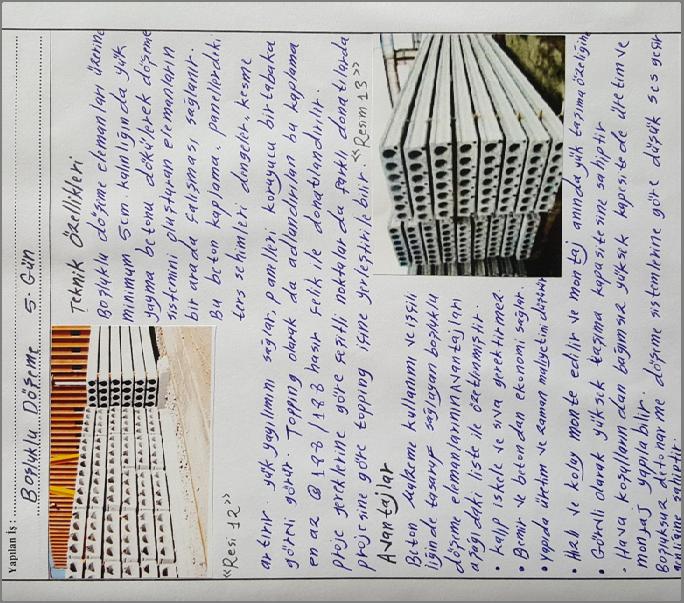 Yapılan İş :
Boşluklu Döşeme 5. Gün
Teknik Özellikleri
Boşluklu döşeme elemanları üzerine
minimum 5cm. kalınlığında yük
yayma betonu dökülerek döşeme
sistemini oluşturan elemanların
bir arada çalışması sağlanır.
Bu beton kaplama, panellerdeki
ters sehimleri dengeler, kesme
<<Resi 12>>
artırır. yük yayılımını sağlar, panelleri koruyucu bir tabaka
görevi görür. Topping olarak da adlandırılan bu kaplama
en az Q 188/188 hasır çelik ile donatılandırılır.
proje gereklerine göre çeşitli noktalarda farklı donatılarda
projesine göre topping içine yerleştirile bilir. <<Resim 13>>
Avantajlar
Beton malzeme kullanımı ve işçi
liğinde tasaruf sağlayan boşluklu
döşeme elmanlarının avantajları
aşağıdaki liste ile özetlenmiştir.
• Kalıp iskele ve sıva gerektirmez
• Demir ve beton dan ekonomi sağlar.
• Yapıda üretim ve zaman maliyetini düşürür
• Hızlı ve kolay monte edilir ve montaj anında yük taşıma özeliğine
• Görevli olarak yüksek taşıma kapasite sine sahiptir
• Hava koşullarından bağımsız yüksek kapasitede üretim ve
montaj yapıla bilir.
Boşluksuz döşeme sistemlerine göre düşük ses geçir
sahiptir.